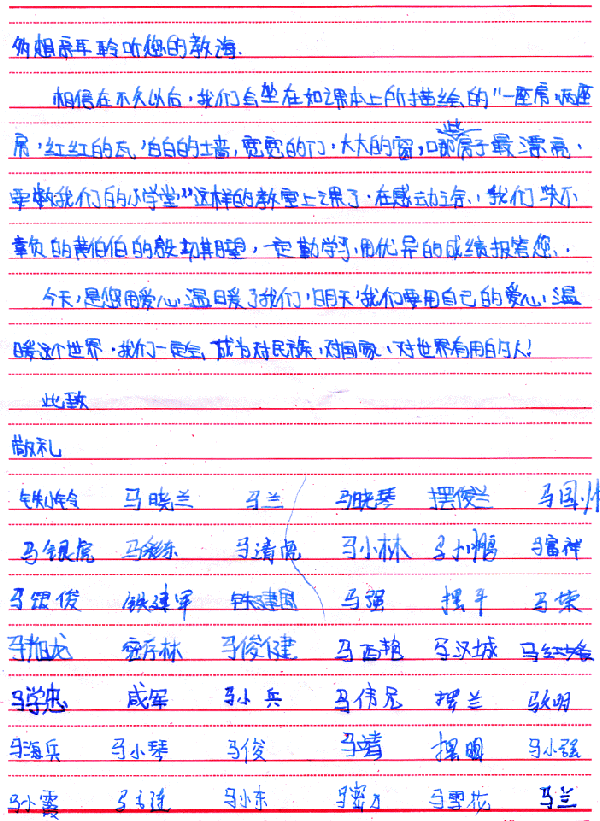 相信在不久以后,我们会坐在如课本上所描绘的"一座房,两座
房,红红的瓦,白白的墙,宽宽的门,大大的窗,哪座房子最漂亮,
要数我们的小学堂"这样的教室上课了,在感动之余,我们决不
辜负的黄伯伯的殷切期望,一定勤学习,用优异的成绩报答您.
今天,是您用爱心温暖了我们,明天,我们要用自己的爱心,温
暖这个世界,我们一定会成为对民族,对国家,对世界有用的人!
此致
敬礼
铁小铃 马晓兰 马兰 马晓琴 摆俊兰 马国
马银虎 马清虎 马小林 马小鹏 马富祥
马银俊 铁建军 铁建国 马强 摆平 马荣
马旭龙 马俊健 马西艳 马汉城
马学忠 咸军 马小兵 马伟 摆兰
马海兵 马小琴 马俊 马靖 摆明 马小强
马小霞 马小东 马雪花 马兰